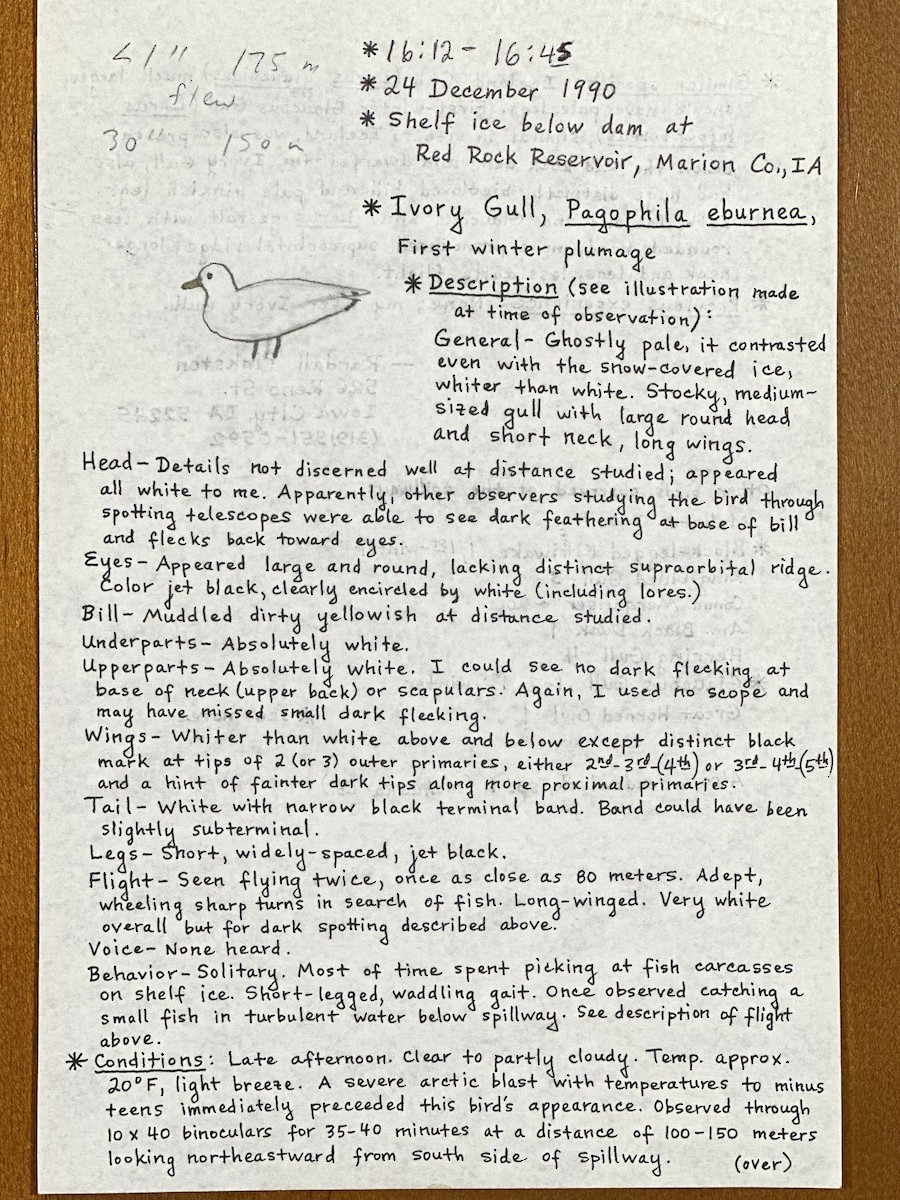 <1" 175 m
flew
30" 150 m
* 16:12 - 16:45
* 24 December 1990
* Shelf ice below dam at
Red Rock Reservoir, Marion Co., IA
* Ivory Gull, Pagophila eburnea,
First winter plumage
* Description (see illustration made
at time of observation):
General- Ghostly pale, it contrasted
even with the snow-covered ice,
whiter than white. Stocky, medium-
sized gull with large round head
and short neck, long wings.
Head- Details not discerned well at distance studied; appeared
all white to me. Apparently, other observers studying the bird through
spotting telescopes were able to see dark feathering at base of bill
and flecks back toward eyes.
Eyes- Appeared large and round, lacking distinct supraorbital ridge.
Color jet black, clearly encircled by white (including lores.)
Bill- Muddled dirty yellowish at distance studied.
Underparts- Absolutely white.
Upperparts- Absolutely white. I could see no dark flecking at
base of neck (upper back) or scapulars. Again, I used no scope and
may have missed small dark flecking.
Wings- Whiter than white above and below except distinct black
mark at tips of 2 (or 3) outer primaries, either 2nd-3rd-(4th) or 3rd-4th-(5th)
and a hint of fainter dark tips along more proximal primaries.
Tail- White with narrow black terminal band. Band could have been
slightly subterminal.
Legs- Short, widely-spaced, jet black.
Flight- Seen flying twice, once as close as 80 meters. Adept,
wheeling sharp turns in search of fish. Long-winged. Very white
overall but for dark spotting described above.
Voice- None heard.
Behavior- Solitary. Most of time spent picking at fish carcasses
on shelf ice. Short-legged, waddling gait. Once observed catching a
small fish in turbulent water below spillway. See description of flight
above.
* Conditions: Late afternoon. Clear to partly cloudy. Temp. approx.
20°F, light breeze. A severe arctic blast with temperatures to minus
teens immediately preceeded this bird's appearance. Observed through
10 x 40 binoculars for 35-40 minutes at a distance of 100-150 meters
looking northeastward from south side of spillway. (over)